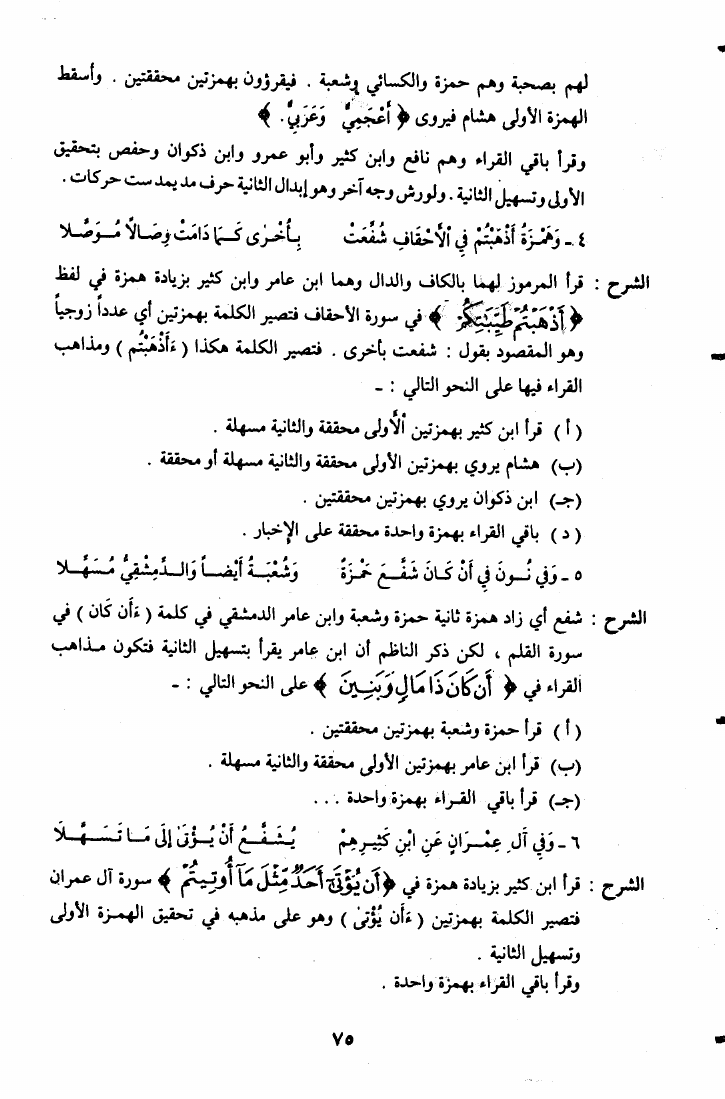 لهم بصحبة وهم حمزة والكسائي وشعبة . فيقرؤون بهمزتين محققتين . وأسقط
الهمزة الأولى هشام فيروى ﴿ أَعْجَمِيٌّ وَعَرَبِيٌّ. ﴾
وقرأ باقي القراء وهم نافع وابن كثير وأبو عمرو وابن ذكوان وحفص بتحقيق
الأولى وتسهيل الثانية . ولورش وجه آخر وهو إبدال الثانية حرف مد يمد ست حركات .
٤ ـ وَهَمْزَةُ أَذْهَبْتُمْ فِي الْأَحْقَافِ شُفِّعَتْ بِأُخْرَى كَمَا دَامَتْ وِصَالاً مُوَصَّلا
الشرح : قرأ المرموز لهما بالكاف والدال وهما ابن عامر وابن كثير بزيادة همزة في لفظ
﴿ أَذْهَبْتُمْ طَيِّبَاتِكُمْ ﴾ في سورة الأحقاف فتصير الكلمة بهمزتين أي عدداً زوجياً
وهو المقصود بقول : شفعت بأخرى . فتصير الكلمة هكذا ( ءَأَذْهَبْتُم ) ومذاهب
القراء فيها على النحو التالي : ـ
( أ ) قرأ ابن كثير بهمزتين الأولى محققة والثانية مسهلة .
(ب) هشام يروي بهمزتين الأولى محققة والثانية مسهلة أو محققة .
(جـ) ابن ذكوان يروي بهمزتين محققتين .
( د ) باقي القراء بهمزة واحدة محققة على الإخبار .
٥ ـ وَفِي نُونَ فِي أَنْ كَانَ شَفَّعَ حَمْزَةٌ وَشُعْبَةُ أَيْضاً وَالدِّمَشْقِيُّ مُسَهِّلا
الشرح : شفع أي زاد همزة ثانية حمزة وشعبة وابن عامر الدمشقي في كلمة ( ءَأَن كَان ) في
سورة القلم ، لكن ذكر الناظم أن ابن عامر يقرأ بتسهيل الثانية فتكون مذاهب
القراء في ﴿ أَن كَانَ ذَا مَالٍ وَبَنِينَ ﴾ على النحو التالي : ـ
( أ ) قرأ حمزة وشعبة بهمزتين محققتين .
(ب) قرأ ابن عامر بهمزتين الأولى محققة والثانية مسهلة .
(جـ) قرأ باقي القراء بهمزة واحدة . . .
٦ ـ وَفِي آلِ عِمْرَانٍ عَنِ ابْنِ كَثِيرِهِمْ يُشَفَّعُ أَنْ يُؤْتَىٰ إِلَى مَا تَسَهَّلَا
الشرح : قرأ ابن كثير بزيادة همزة في ﴿ أَن يُؤْتَىٰٓ أَحَدٌ مِّثْلَ مَآ أُوتِيتُمْ ﴾ سورة آل عمران
فتصير الكلمة بهمزتين ( ءَأَن يُؤْتىٰ ) وهو على مذهبه في تحقيق الهمزة الأولى
وتسهيل الثانية .
وقرأ باقي القراء بهمزة واحدة .
٧٥